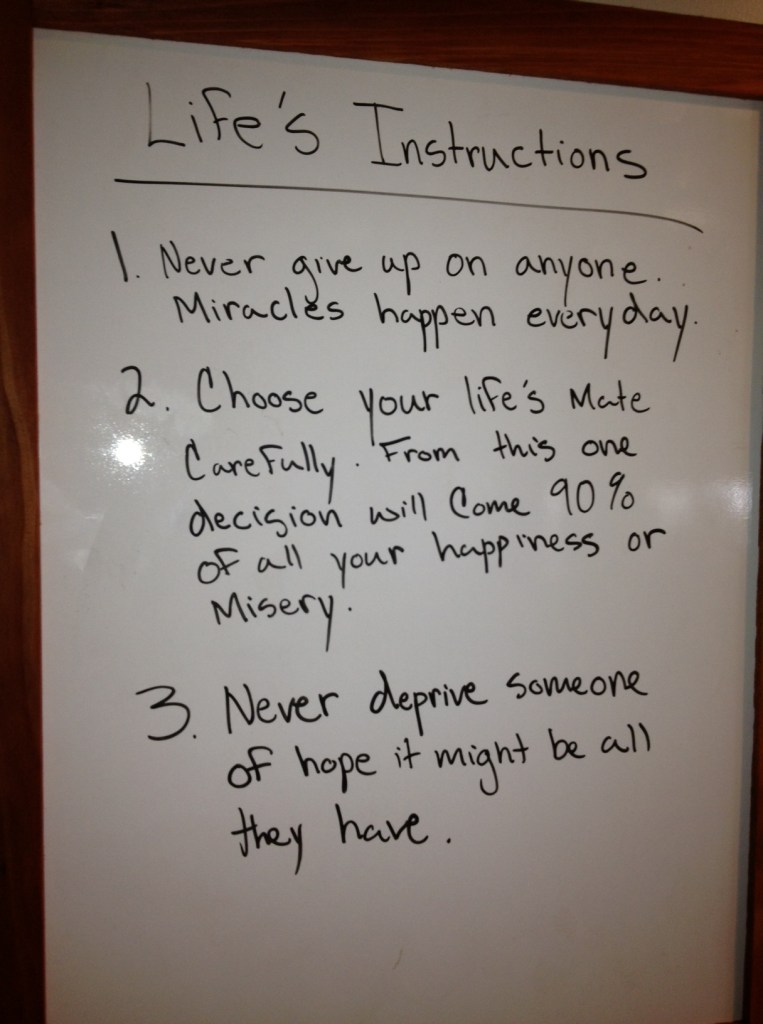 Life's Instructions
1. Never give up on anyone.
Miracles happen everyday.
2. Choose your life's Mate
Carefully. From this one
decision will Come 90%
of all your happiness or
Misery.
3. Never deprive someone
of hope it might be all
they have.